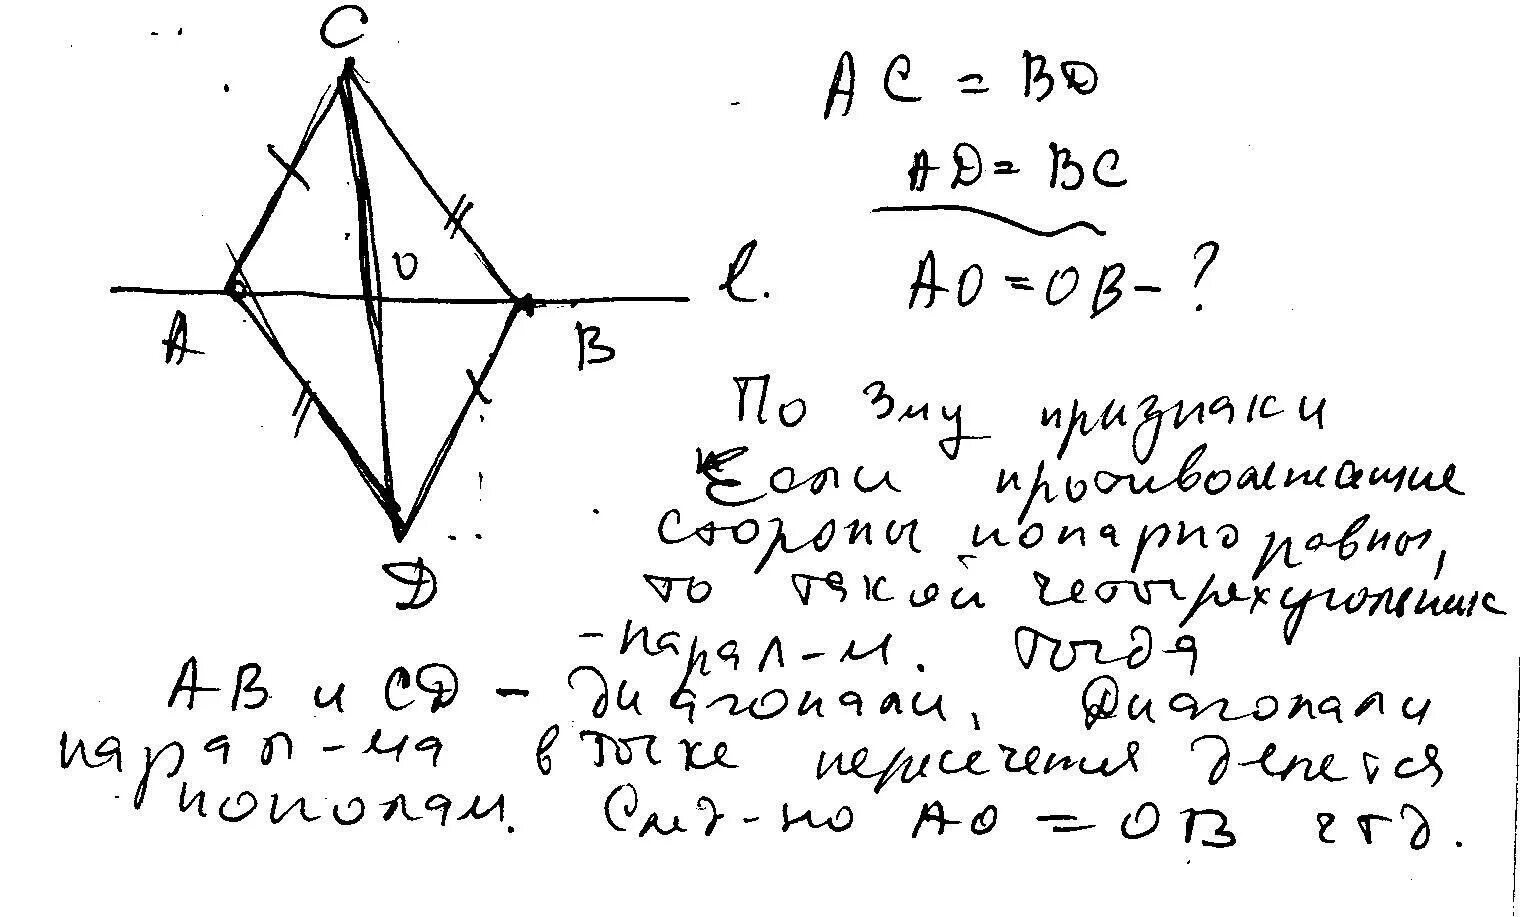 C
AC = BD
AD = BC
O
l.
AO = OB - ?
A
B
По 3му признаки
Если противолежащие
стороны попарно равны,
D
то такой четырехугольник
- парал-м. Тогда
AB и CD - диагонали. Диагонали
парал-ма в точке пересечения делетса
пополам. След-но AO = OB чтд.